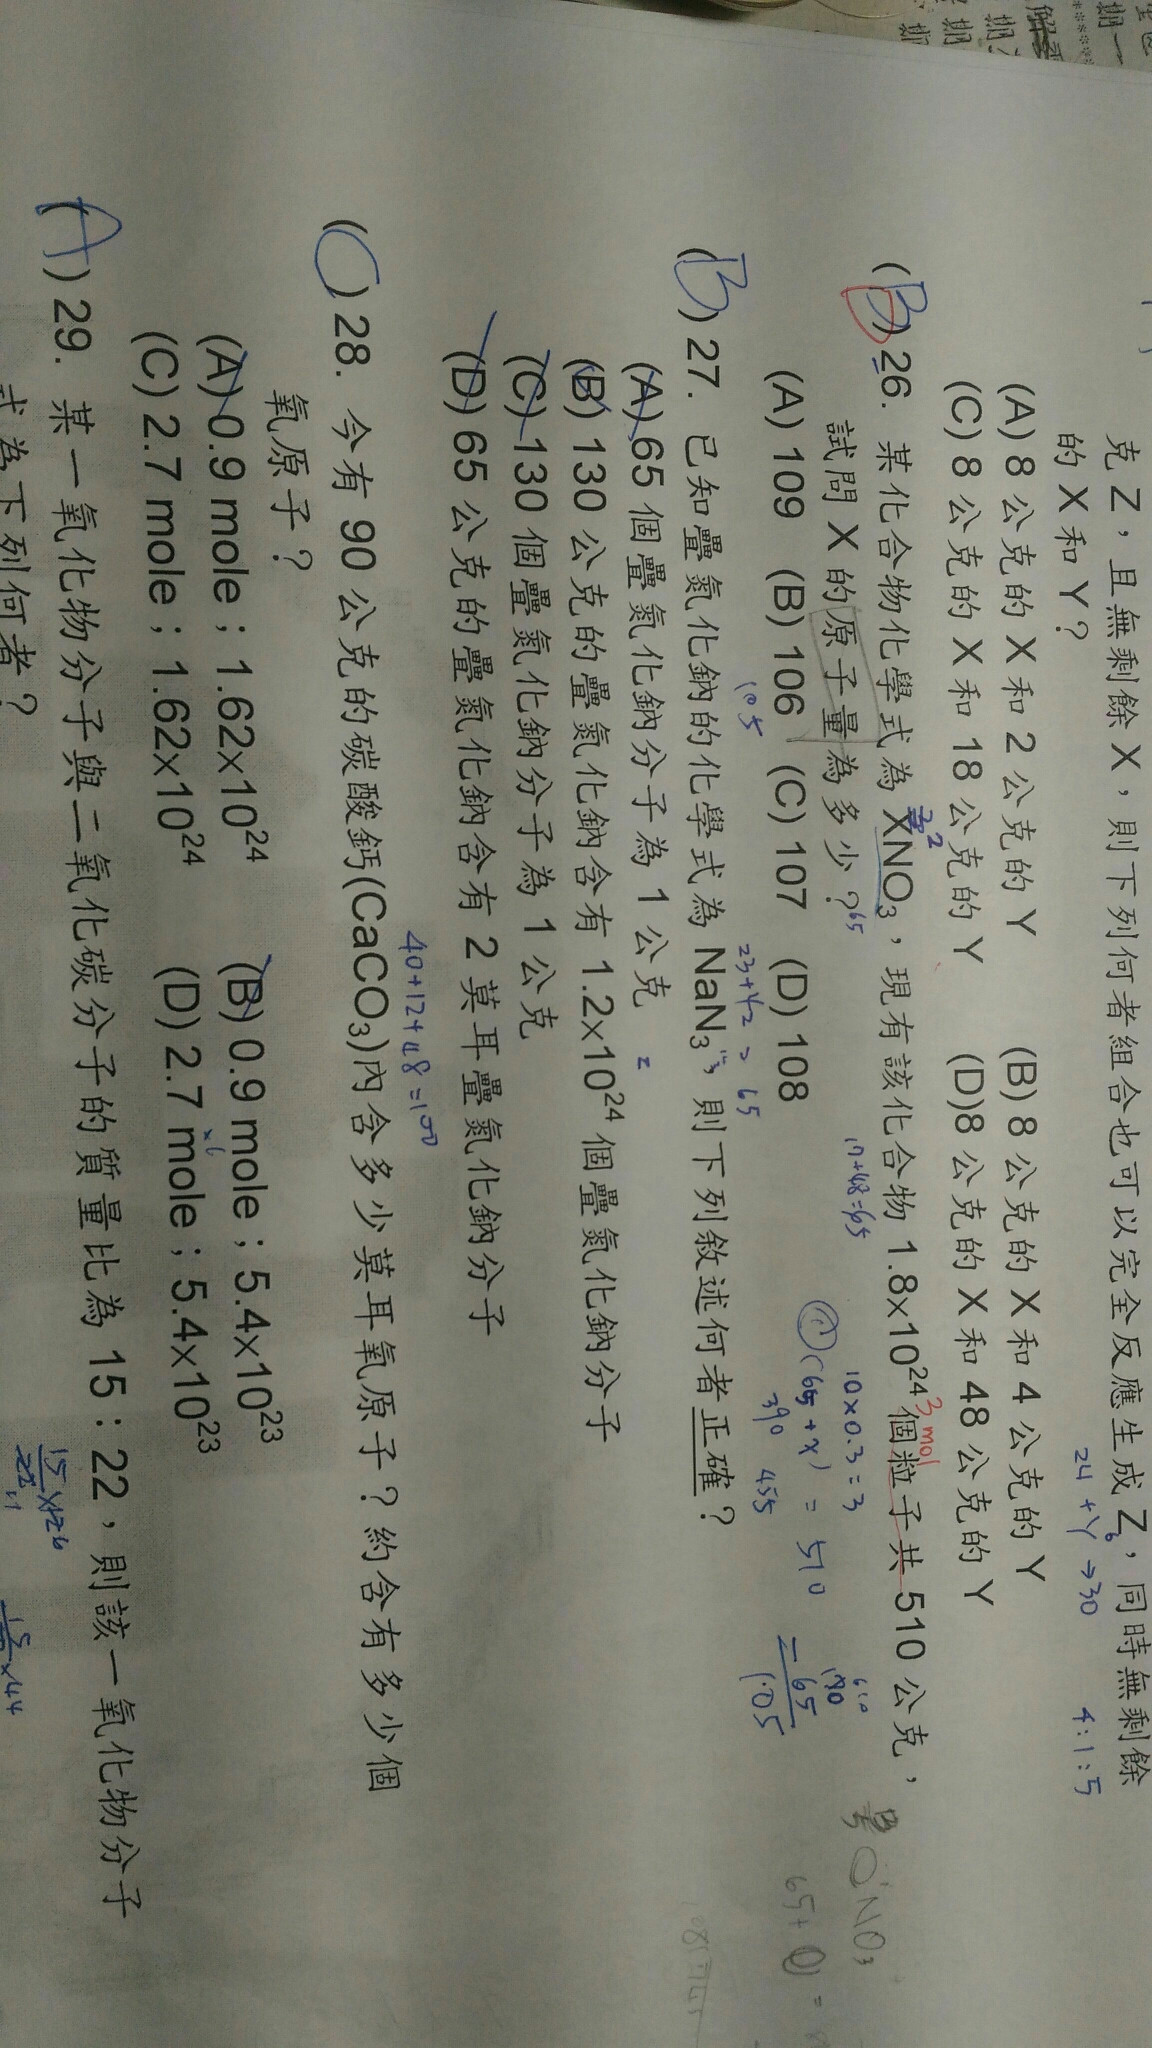 克 Z，且無剩餘 X，則下列何者組合也可以完全反應生成 Z，同時無剩餘
的 X 和 Y？
24 + Y → 30
4:1:5
(A) 8 公克的 X 和 2 公克的 Y (B) 8 公克的 X 和 4 公克的 Y
(C) 8 公克的 X 和 18 公克的 Y (D)8 公克的 X 和 48 公克的 Y
(B) 26. 某化合物化學式為 XNO3，現有該化合物 1.8×10²⁴ 個粒子共 510 公克，
3 mol
試問 X 的原子量為多少？
65
17+48=65
10×0.3=3
(65+x) = 510
390 455
170
-65
105
(A) 109 (B) 106 (C) 107 (D) 108
105
NO3
65+
(B) 27. 已知疊氮化鈉的化學式為 NaN3，則下列敘述何者正確？
23+42=65
(A) 65 個疊氮化鈉分子為 1 公克
(B) 130 公克的疊氮化鈉含有 1.2×10²⁴ 個疊氮化鈉分子
(C) 130 個疊氮化鈉分子為 1 公克
(D) 65 公克的疊氮化鈉含有 2 莫耳疊氮化鈉分子
40+12+48=100
(C) 28. 今有 90 公克的碳酸鈣(CaCO3)內含多少莫耳氧原子？約含有多少個
氧原子？
(A) 0.9 mole；1.62×10²⁴ (B) 0.9 mole；5.4×10²³
(C) 2.7 mole；1.62×10²⁴ (D) 2.7 mole；5.4×10²³
×6
(A) 29. 某一氧化物分子與二氧化碳分子的質量比為 15：22，則該一氧化物分子
式為下列何者？